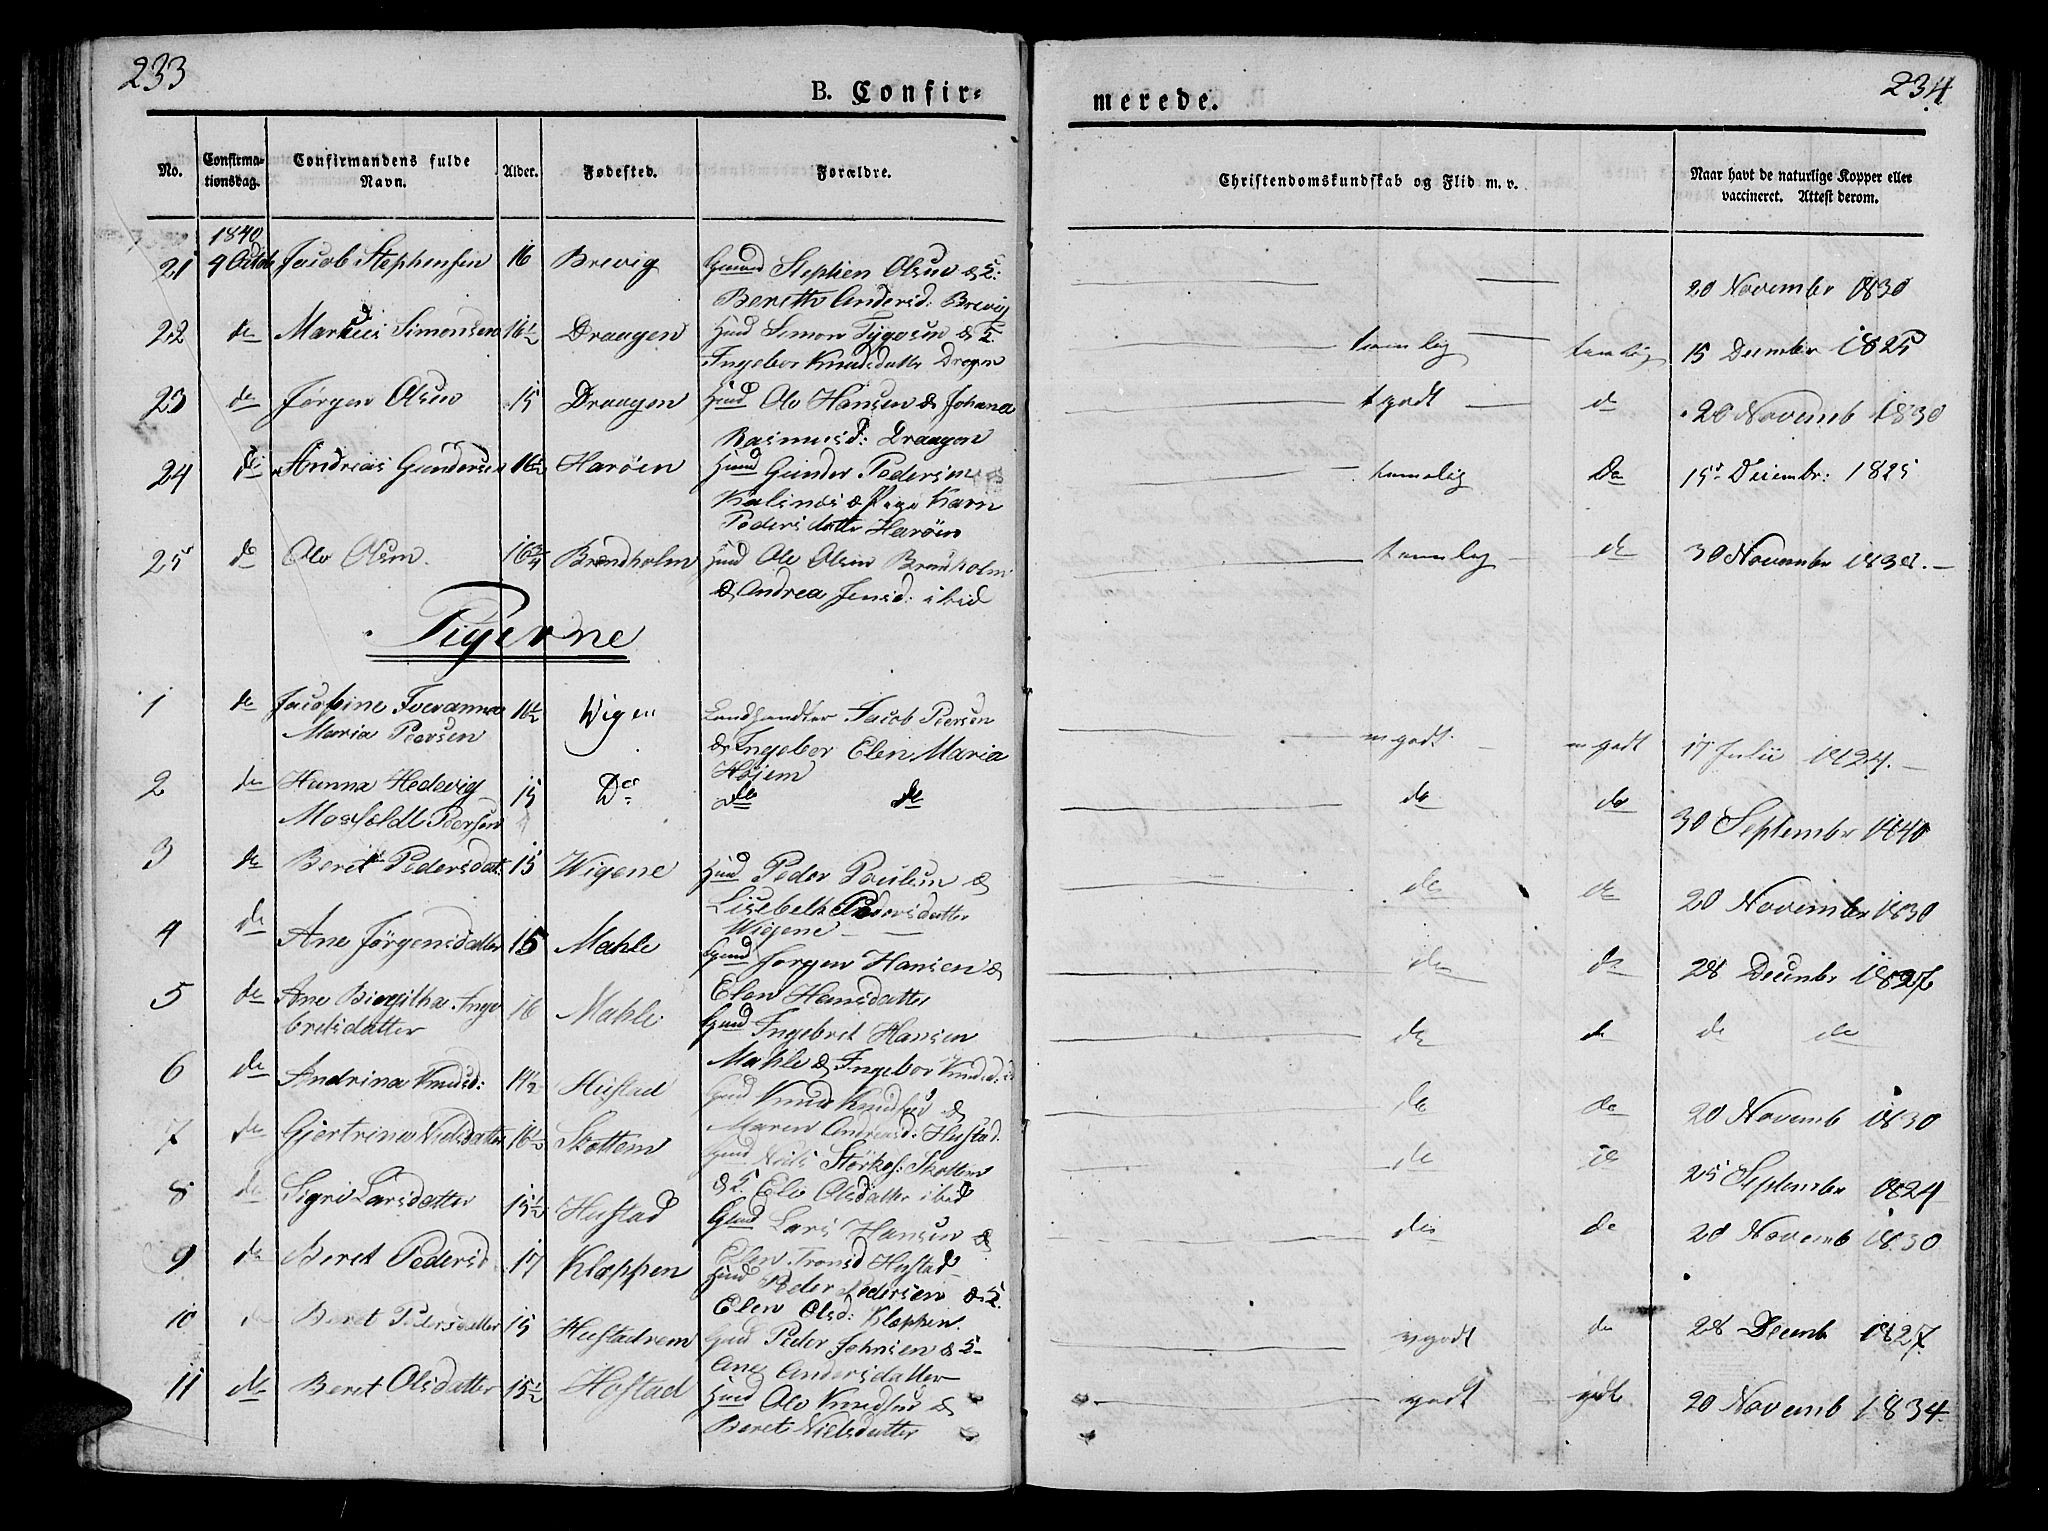 233
B. Confir-
merede.
234
No.
Confirma-
tionsdag.
Confirmandens fulde
Navn.
Alder.
Fødested.
Forældre.
Christendomskundskab og Flid m. v.
Naar havt de naturlige Kopper eller
vaccineret. Attest derom.
1840
21 9 Octb Jacob Stephensen 16 Brevig Stephen Olsen &
Berethe Andersd: Brevig
20 November 1830
22 de Markus Simonsen 16½ Draagen Huusd Simon &
Ingebor Knudsdatter Dragen
temlig temlig 15 December 1825
23 de Jørgen Olsen 15 Draagen Huusd Ole Hansen & Johana
Rasmusd: Draagen
tgodt de 20 Novemb 1830
24 de Andreas Gundersen 16½ Harøen Huusd Gunder Pedersen
& Pige Karn
Pedersdatter Harøen
temelig De 15 Decembr: 1825
25 de Ole Olsen 16¾ Brendholm Huusd Ole Olsen Brendholm
& Andrea Jensd: ibid
temlig de 30 November
Pigerne
1 de Jacobine
Maria Peersen
16½ Wigen Landhandler Jacob Peersen
& Ingebor Elen Maria
Højem
mgodt mgodt 17 Julii 1824.
2 de Hanna Hedevig
Peersen
15 Do de de
de de 30 September 1840
3 de Beret Pedersdat: 15 Wigene Huusd Peder Poulsen &
Lisebeth Pedersdatter
Wigene
de de 20 November 1830
4 de Ane Jørgensdatter 15 Mahle Gmd Jørgen Hansen &
Elen Hansdatter
de de 28 Decembr 1827
5 de Ane Birgitha Inge
bretsdatter
16 Mahle Gmd Ingebret Hansen
Mahle & Ingebor Knudsd:
de de de de
6 de Andrina Knudsd: 14½ Hustad Gmd Knud Knudsen &
Maren Andreasd: Hustad.
de de 20 Novemb 1830
7 de Gjertrine Nielsdatter 16½ Skottem Gmd Niels Størkes: Skottem
& Eli Olsdatter ibid
de de 25 September 1824
8 de Sigri Larsdatter 15½ Hustad Gmd Lars Hansen &
Elen Tronsd Hustad
de de 20 Novemb 1830
9 de Beret Pedersd 17 Kloppen Huusd Peder Pedersen &
Elen Olsd: Kloppen.
10 de Beret Pedersdatter 15 Hustadnem Gmd Peder Johnsen &
Ane Andersdatter
vgodt de 28 Decemb 1827.
11 de Beret Olsdatter 15½ Hostad Huusd Ole Knudsen &
Beret Nielsdatter
godt godt 20 Novemb 1834.